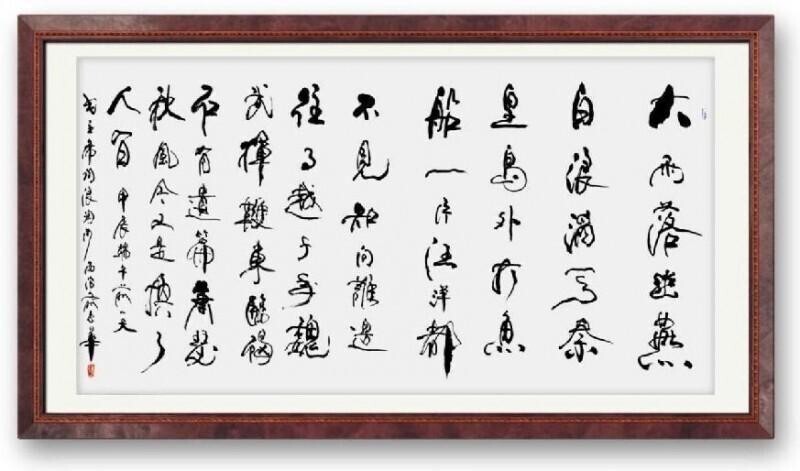 大雨落幽燕
白浪滔天秦
皇島外打魚
船一片汪洋都
不見知向誰邊
往事越千年魏
武揮鞭東臨碣
石有遺篇蕭瑟
秋風今又是換了
人間 甲辰端午前一天
毛主席詞浪淘沙